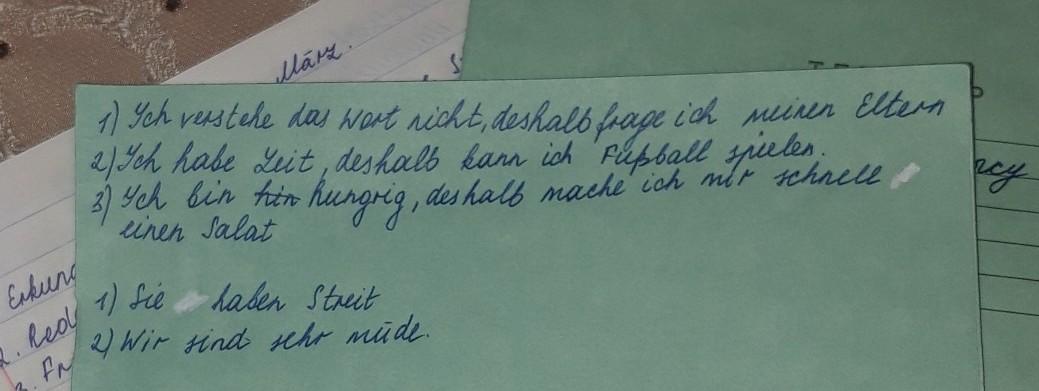 März.
1) Ich verstehe das Wort nicht, deshalb frage ich meinen Eltern
2) Ich habe Zeit, deshalb kann ich Fußball spielen.
3) Ich bin hungrig, deshalb mache ich mir schnell
einen Salat
1) Sie haben Streit
2) Wir sind sehr müde.